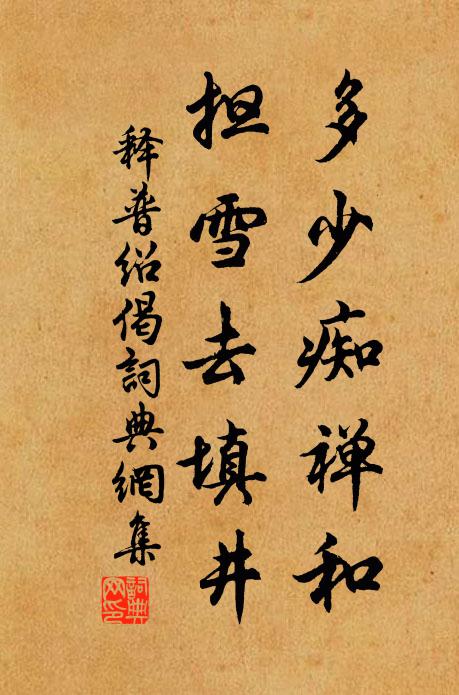 多少痴禅和
担雪去填井
释普绍偈詞典網集
詞典
网印